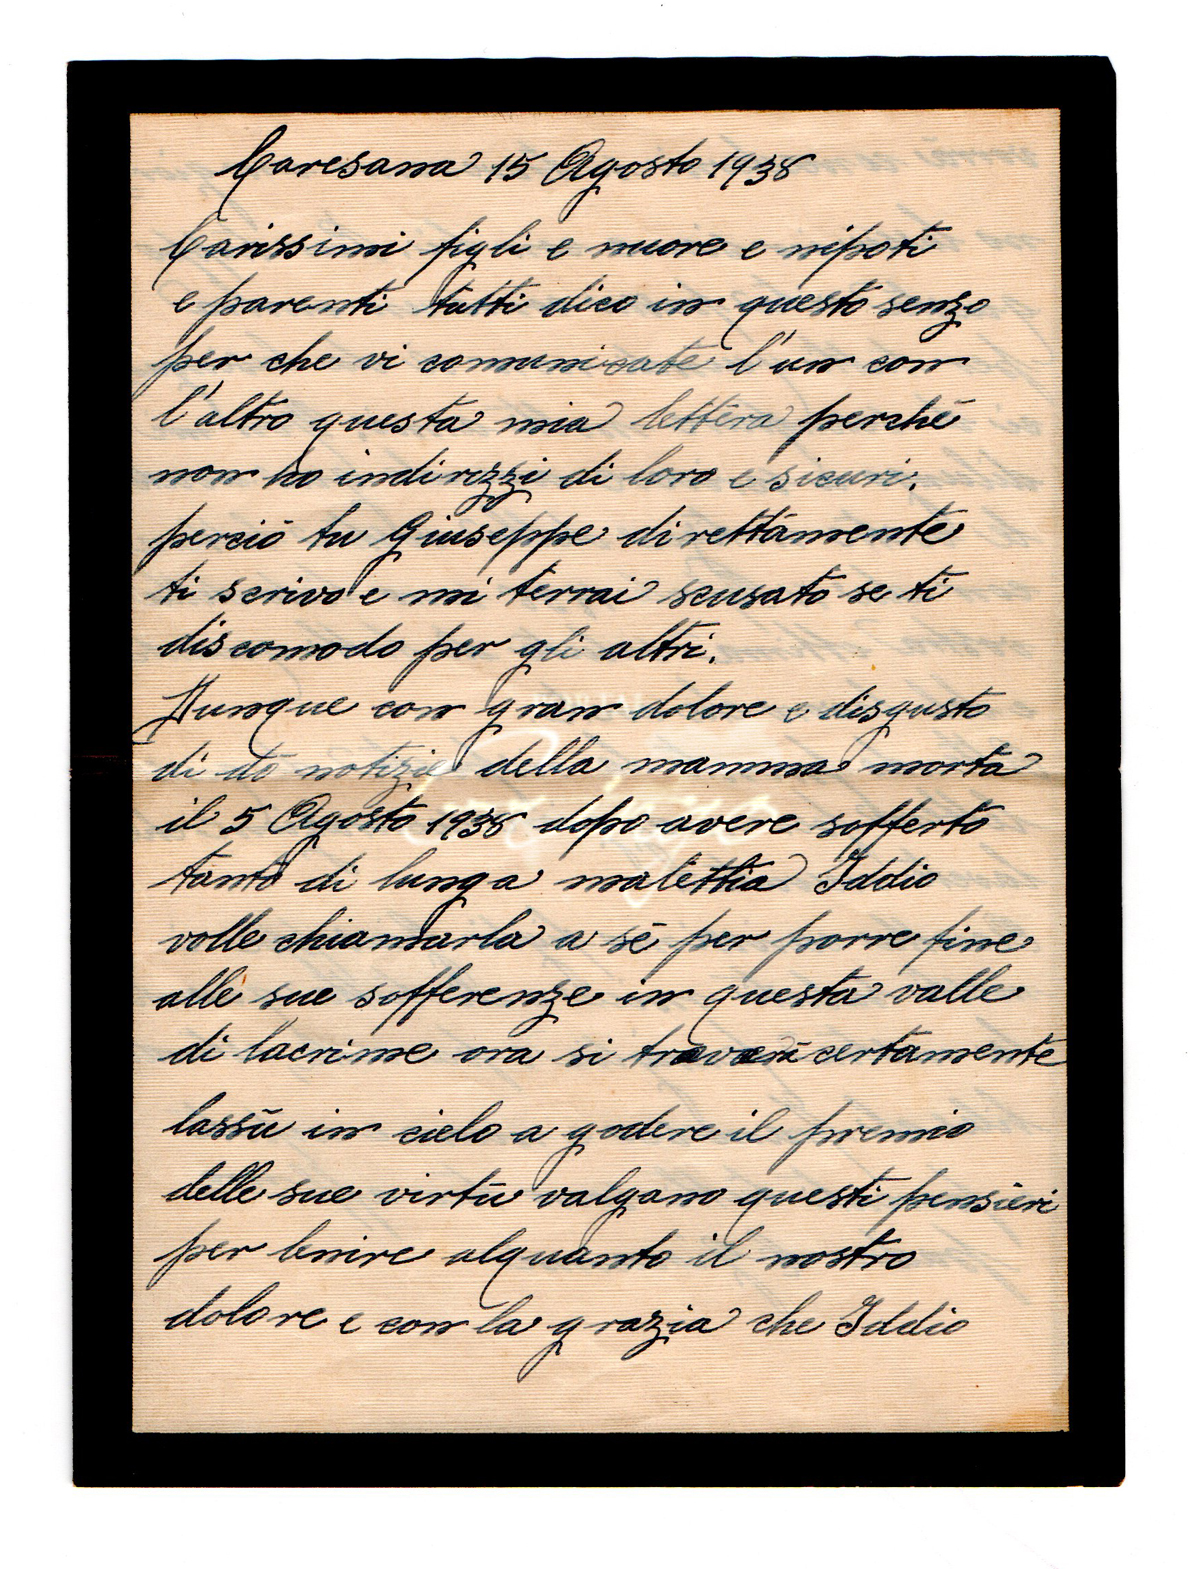 Caresana 15 Agosto 1938
Carissimi figli e nuore e nipoti
e parenti tutti dico in questo senzo
per che vi comunicate l'un con
l'altro questa mia lettera perchè
non ho indirezzi di loro e sicuri.
perciò tu Giuseppe direttamente
ti scrivo e mi terrai scusato se ti
discomodo per gli altri.
Dunque con gran dolore e disgusto
di dò notizie della mamma morta
il 5 Agosto 1938 dopo avere sofferto
tanto di lunga malettia Iddio
volle chiamarla a sè per porre fine
alle sue sofferenze in questa valle
di lacrime ora si troverà certamente
lassù in cielo a godere il premio
delle sue virtù valgano questi pensieri
per lenire alquanto il nostro
dolore e con la grazia che Iddio